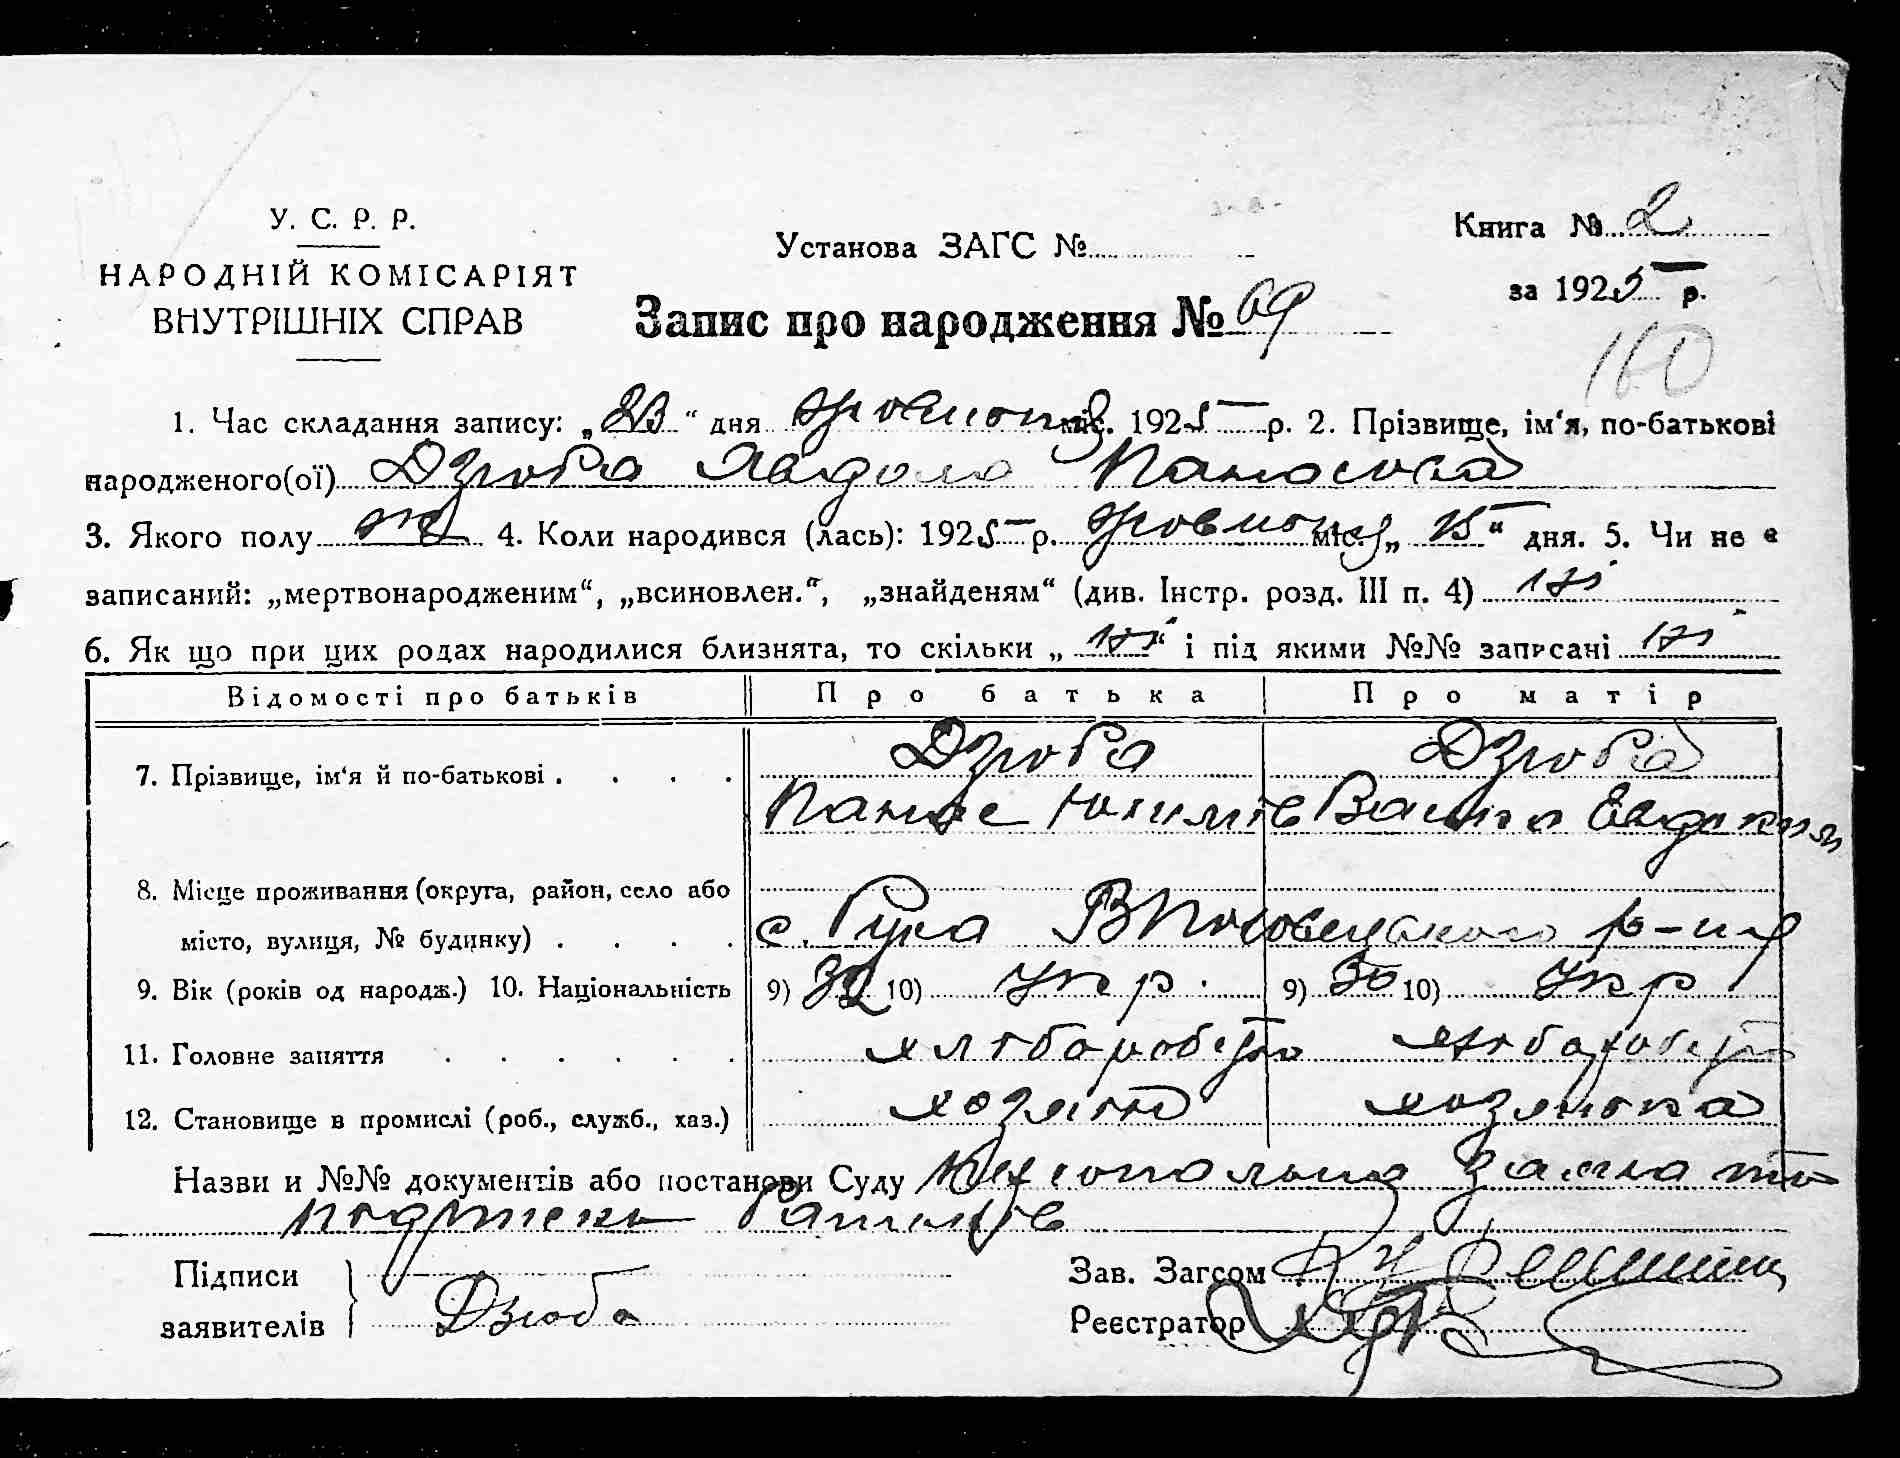 У. С. Р. Р.
НАРОДНІЙ КОМІСАРІЯТ
ВНУТРІШНІХ СПРАВ
Установа ЗАГС №
Книга № 2
за 1925 р.
Запис про народження № 69
160
1. Час складання запису: „23“ дня жовтня міс. 1925 р. 2. Прізвище, ім‘я, по-батькові
народженого(ої) Дзюба Явдоха Панасова
3. Якого полу ж 4. Коли народився (лась): 1925 р. жовтня міс. „15“ дня. 5. Чи не є
записаний: „мертвонародженим“, „всиновлен.“, „знайденям“ (див. Інстр. розд. III п. 4) ні
6. Як що при цих родах народилися близнята, то скільки „ні“ і під якими №№ записані ні
Відомості про батьків Про батька Про матір
7. Прізвище, ім‘я й по-батькові . . . . Дзюба Дзюба
Панас Юхимів
8. Місце проживання (округа, район, село або
місто, вулиця, № будинку) . . . . с. р-ну
9. Вік (років од народж.) 10. Національність 9) 32 10) Укр. 9) 30 10) Укр
11. Головне заняття . . . . . . хлібороб хлібороб
12. Становище в промислі (роб., служб., хаз.) хозяїн хозяйка
Назви и №№ документів або постанови Суду
Підписи
заявителів } Дзюба
Зав. Загсом
Реєстратор